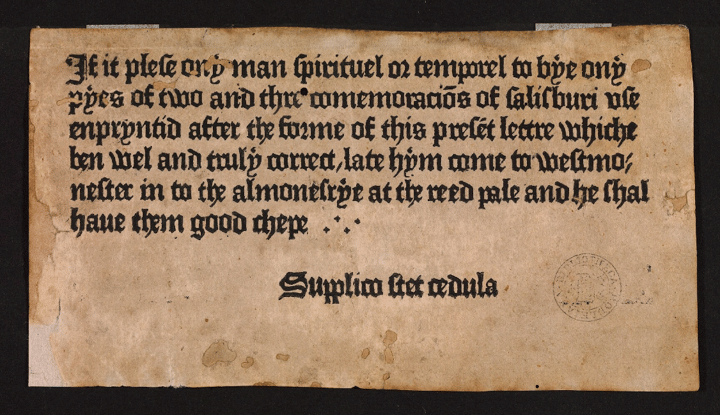 If it plese ony man spirituel or temporel to bye ony
pyes of two and thre comemoraciōs of salisburi vse
enpryntid after the forme of this presēt lettre whiche
ben wel and truly correct, late hym come to westmo⸗
nester in to the almonesrye at the reed pale and he shal
haue them good chepe .∙.∙.
Supplico stet cedula